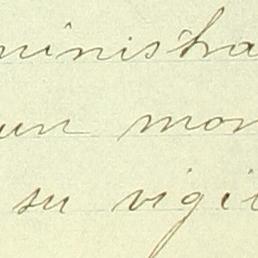 ministra
un mon
su vigi